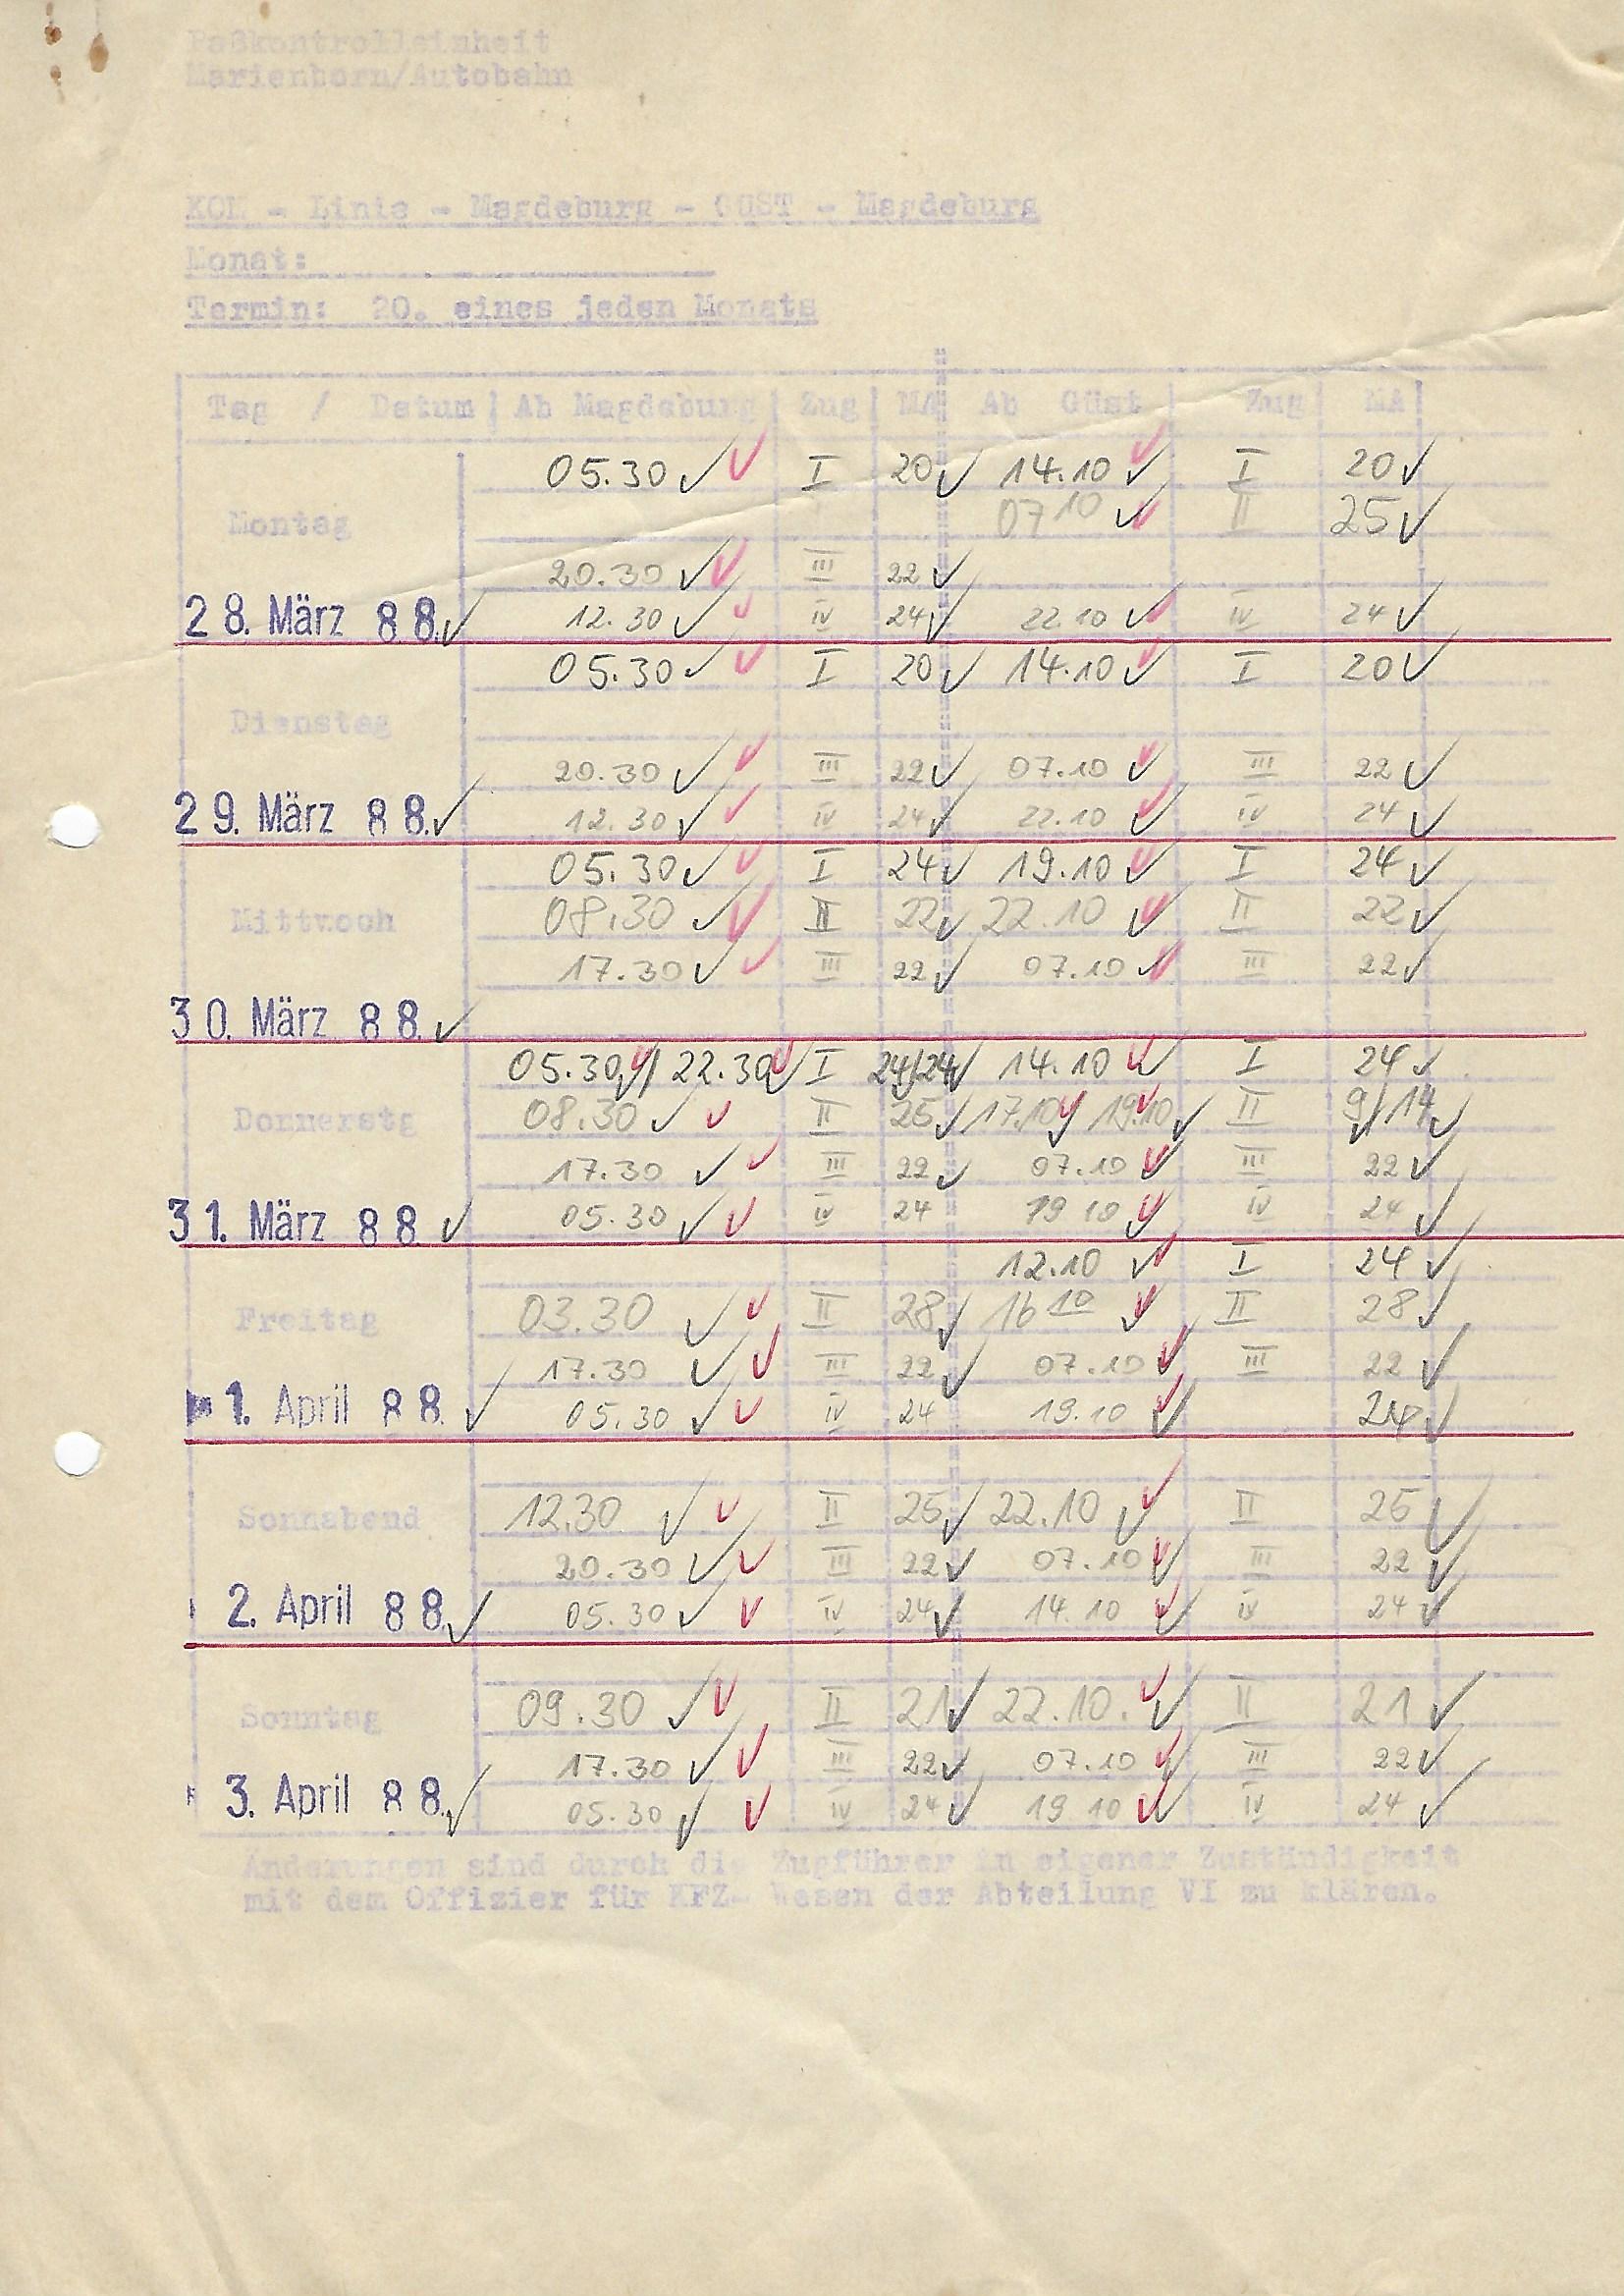 Paßkontrolleinheit
Marienborn/Autobahn
KOM - Linie - Magdeburg - GÜST - Magdeburg
Monat:
Termin: 20. eines jeden Monats
Tag / Datum Ab Magdeburg Zug MA Ab Güst Zug MA
05.30 I 20 14.10 I 20
Montag 07 10 II 25
20.30 III 22
28. März 88. 12.30 IV 24 22.10 IV 24
05.30 I 20 14.10 I 20
Dienstag
20.30 III 22 07.10 III 22
29. März 88. 12.30 IV 24 22.10 IV 24
05.30 I 24 19.10 I 24
Mittwoch 08.30 II 22 22.10 II 22
17.30 III 22 07.10 III 22
30. März 88.
05.30 / 22.30 I 24/24 14.10 I 24
Donnerstg 08.30 II 25 17.10 / 19.10 II 9/14
17.30 III 22 07.10 III 22
31. März 88. 05.30 IV 24 19 10 IV 24
12.10 I 24
Freitag 03.30 II 28 16 10 II 28
17.30 III 22 07.10 III 22
1. April 88. 05.30 IV 24 19.10 24
Sonnabend 12.30 II 25 22.10 II 25
20.30 III 22 07.10 III 22
2. April 88. 05.30 IV 24 14.10 IV 24
Sonntag 09.30 II 21 22.10. II 21
17.30 III 22 07.10 III 22
3. April 88. 05.30 IV 24 19 10 IV 24
Änderungen sind durch die Zugführer in eigener Zuständigkeit
mit dem Offizier für KFZ- Wesen der Abteilung VI zu klären.